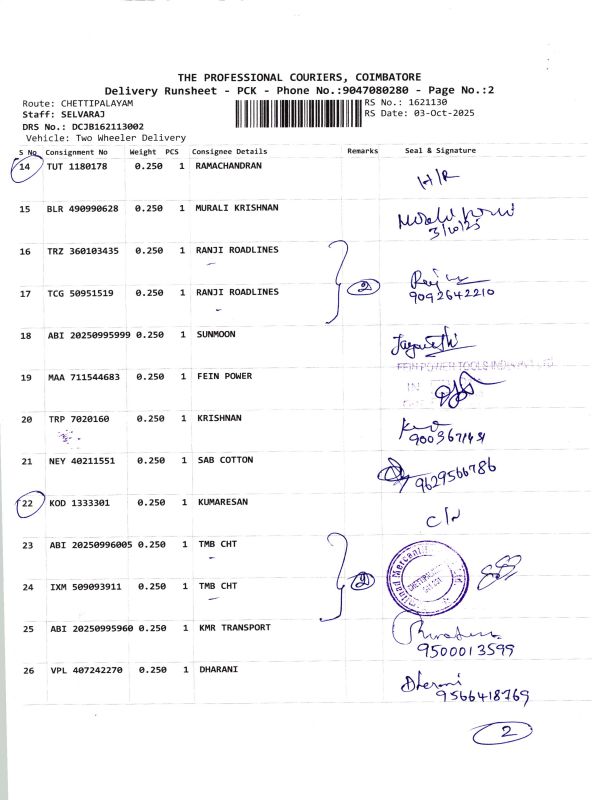 THE PROFESSIONAL COURIERS, COIMBATORE
Delivery Runsheet - PCK - Phone No.:9047080280 - Page No.:2
Route: CHETTIPALAYAM RS No.: 1621130
Staff: SELVARAJ RS Date: 03-Oct-2025
DRS No.: DCJB162113002
Vehicle: Two Wheeler Delivery
S No Consignment No Weight PCS Consignee Details Remarks Seal & Signature
14 TUT 1180178 0.250 1 RAMACHANDRAN H/R
15 BLR 490990628 0.250 1 MURALI KRISHNAN
3/10/25
16 TRZ 360103435 0.250 1 RANJI ROADLINES
2
17 TCG 50951519 0.250 1 RANJI ROADLINES 9092642210
18 ABI 20250995999 0.250 1 SUNMOON
FEIN POWER TOOLS INDIA PVT LTD
19 MAA 711544683 0.250 1 FEIN POWER
20 TRP 7020160 0.250 1 KRISHNAN
21 NEY 40211551 0.250 1 SAB COTTON 9629566786
22 KOD 1333301 0.250 1 KUMARESAN
23 ABI 20250996005 0.250 1 TMB CHT
2
24 IXM 509093911 0.250 1 TMB CHT
25 ABI 20250995960 0.250 1 KMR TRANSPORT
9500013599
26 VPL 407242270 0.250 1 DHARANI Dharani
9566418769
2